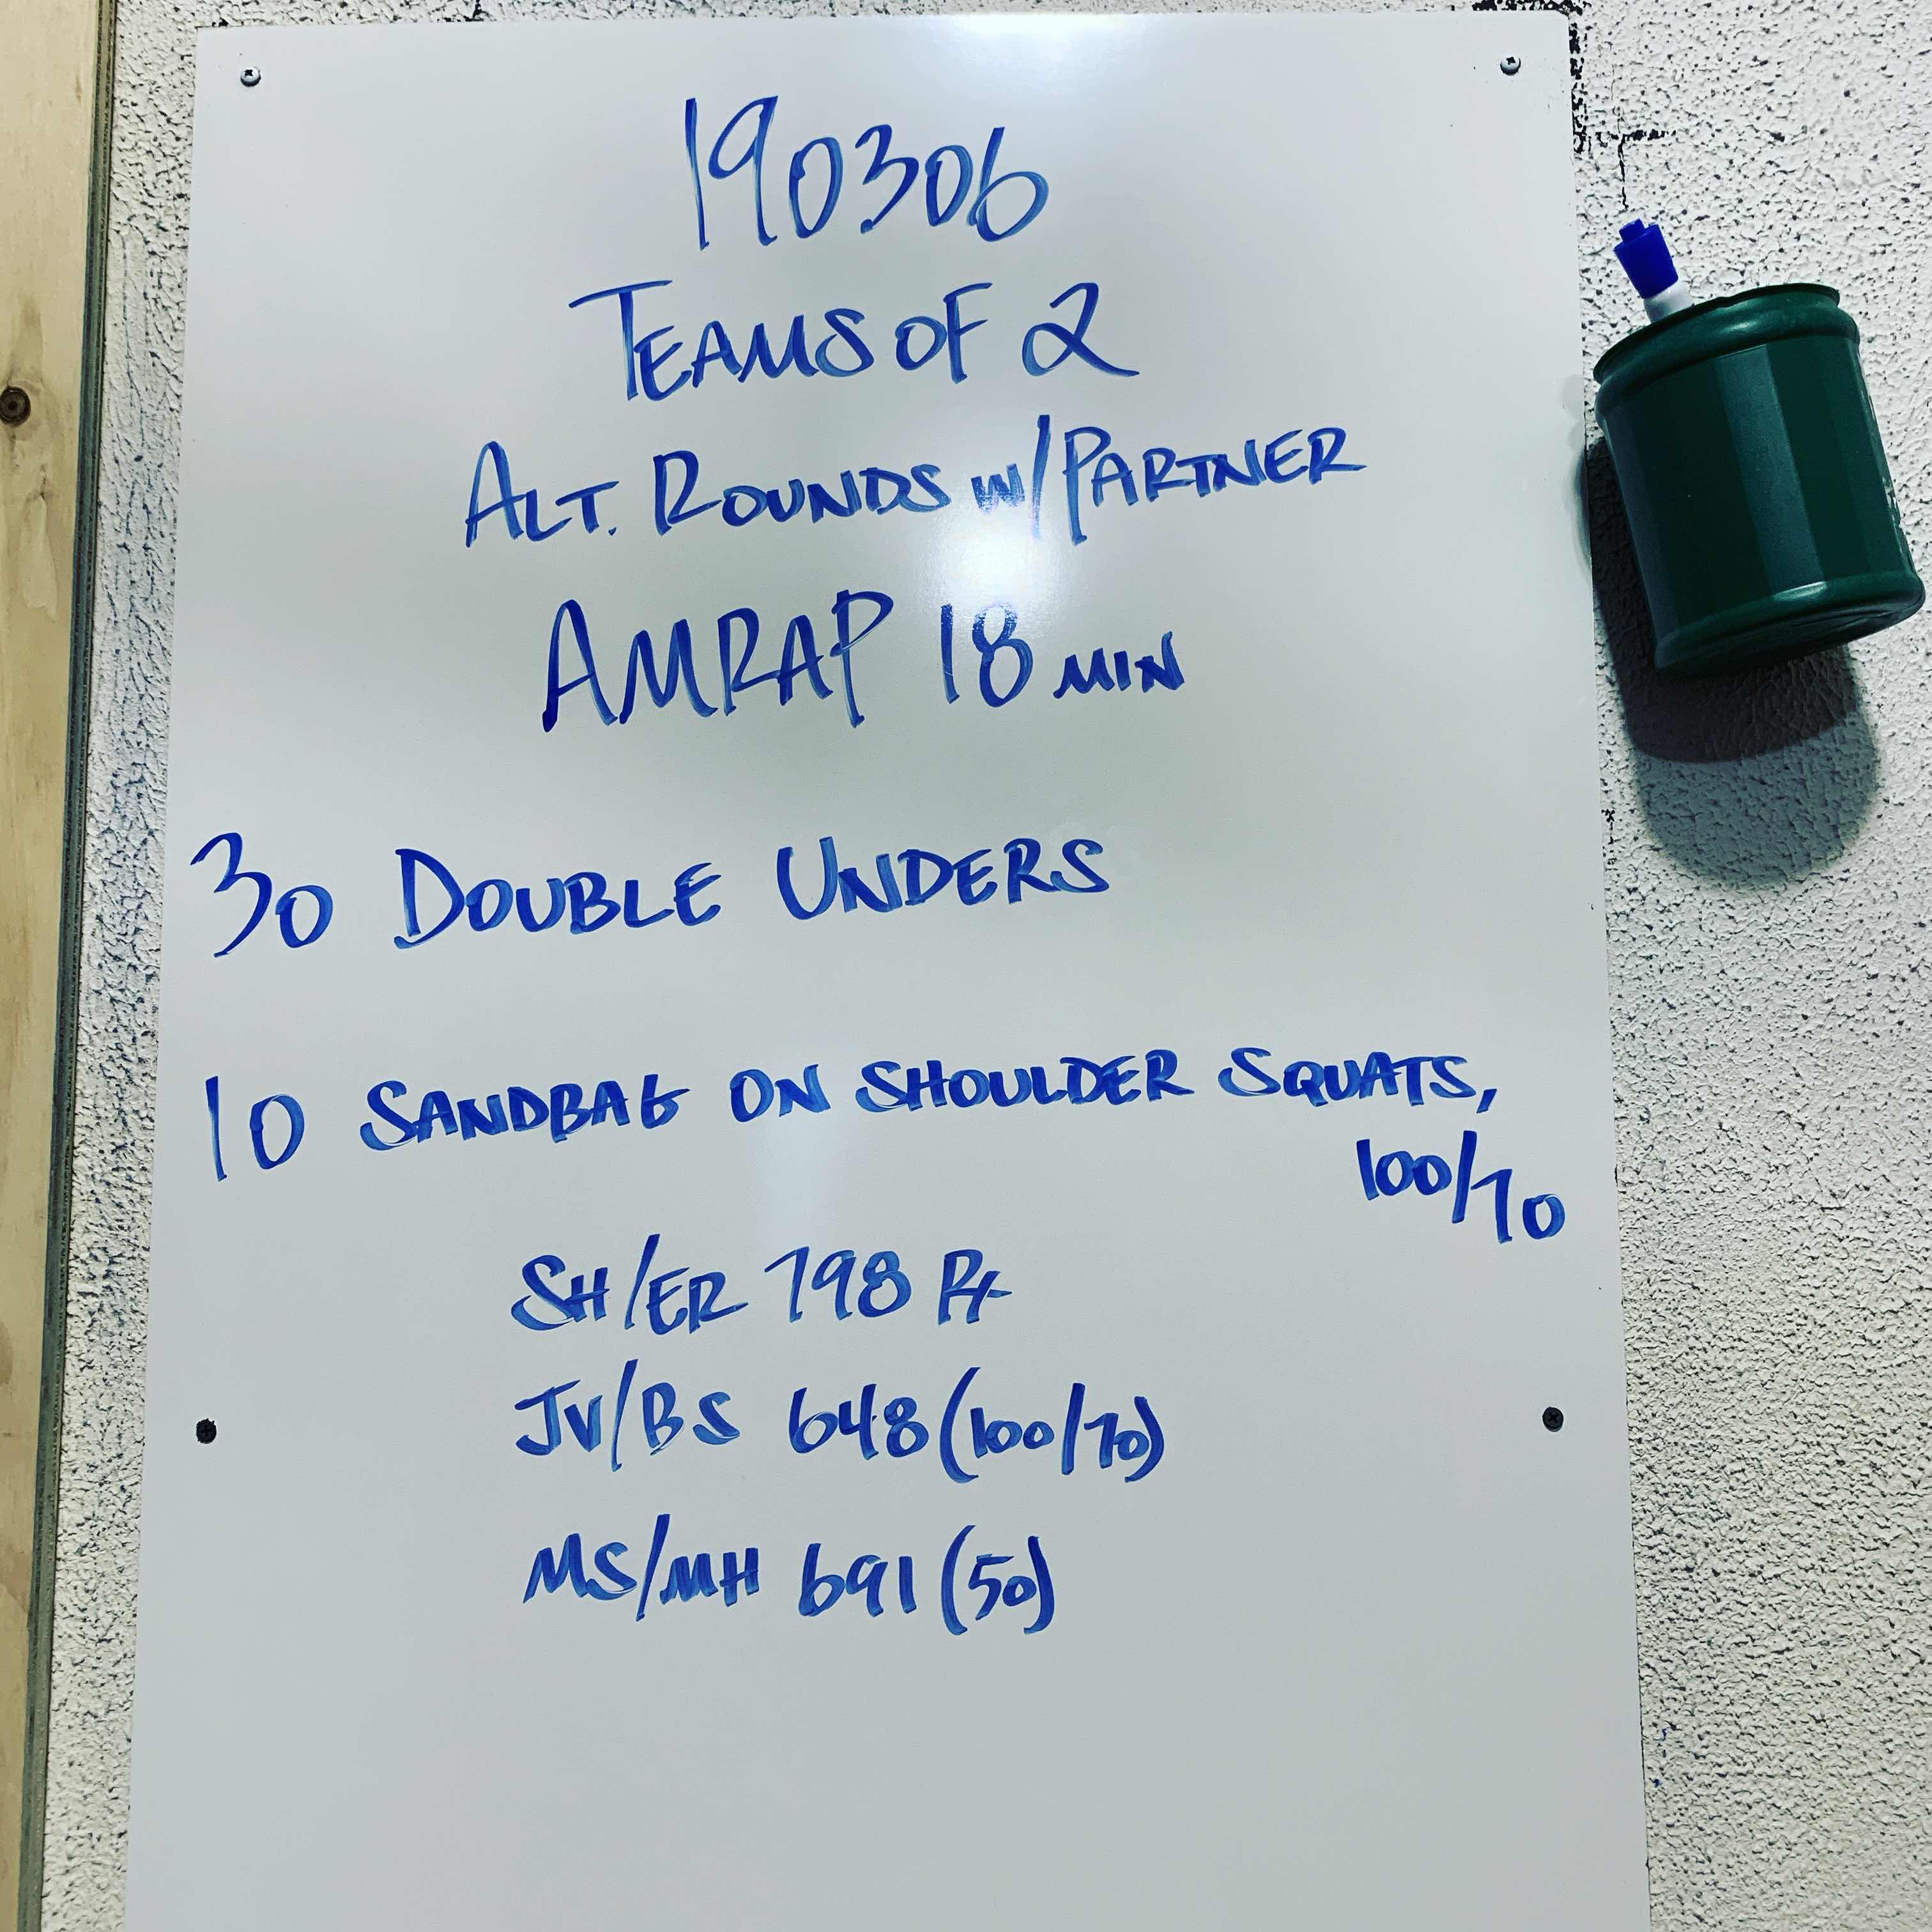 190306
TEAMS OF 2
ALT. ROUNDS W/PARTNER
AMRAP 18 MIN
30 DOUBLE UNDERS
10 SANDBAG ON SHOULDER SQUATS,
100/70
SH/ER 798 Rx
JV/BS 648 (100/70)
MS/MH 691 (50)